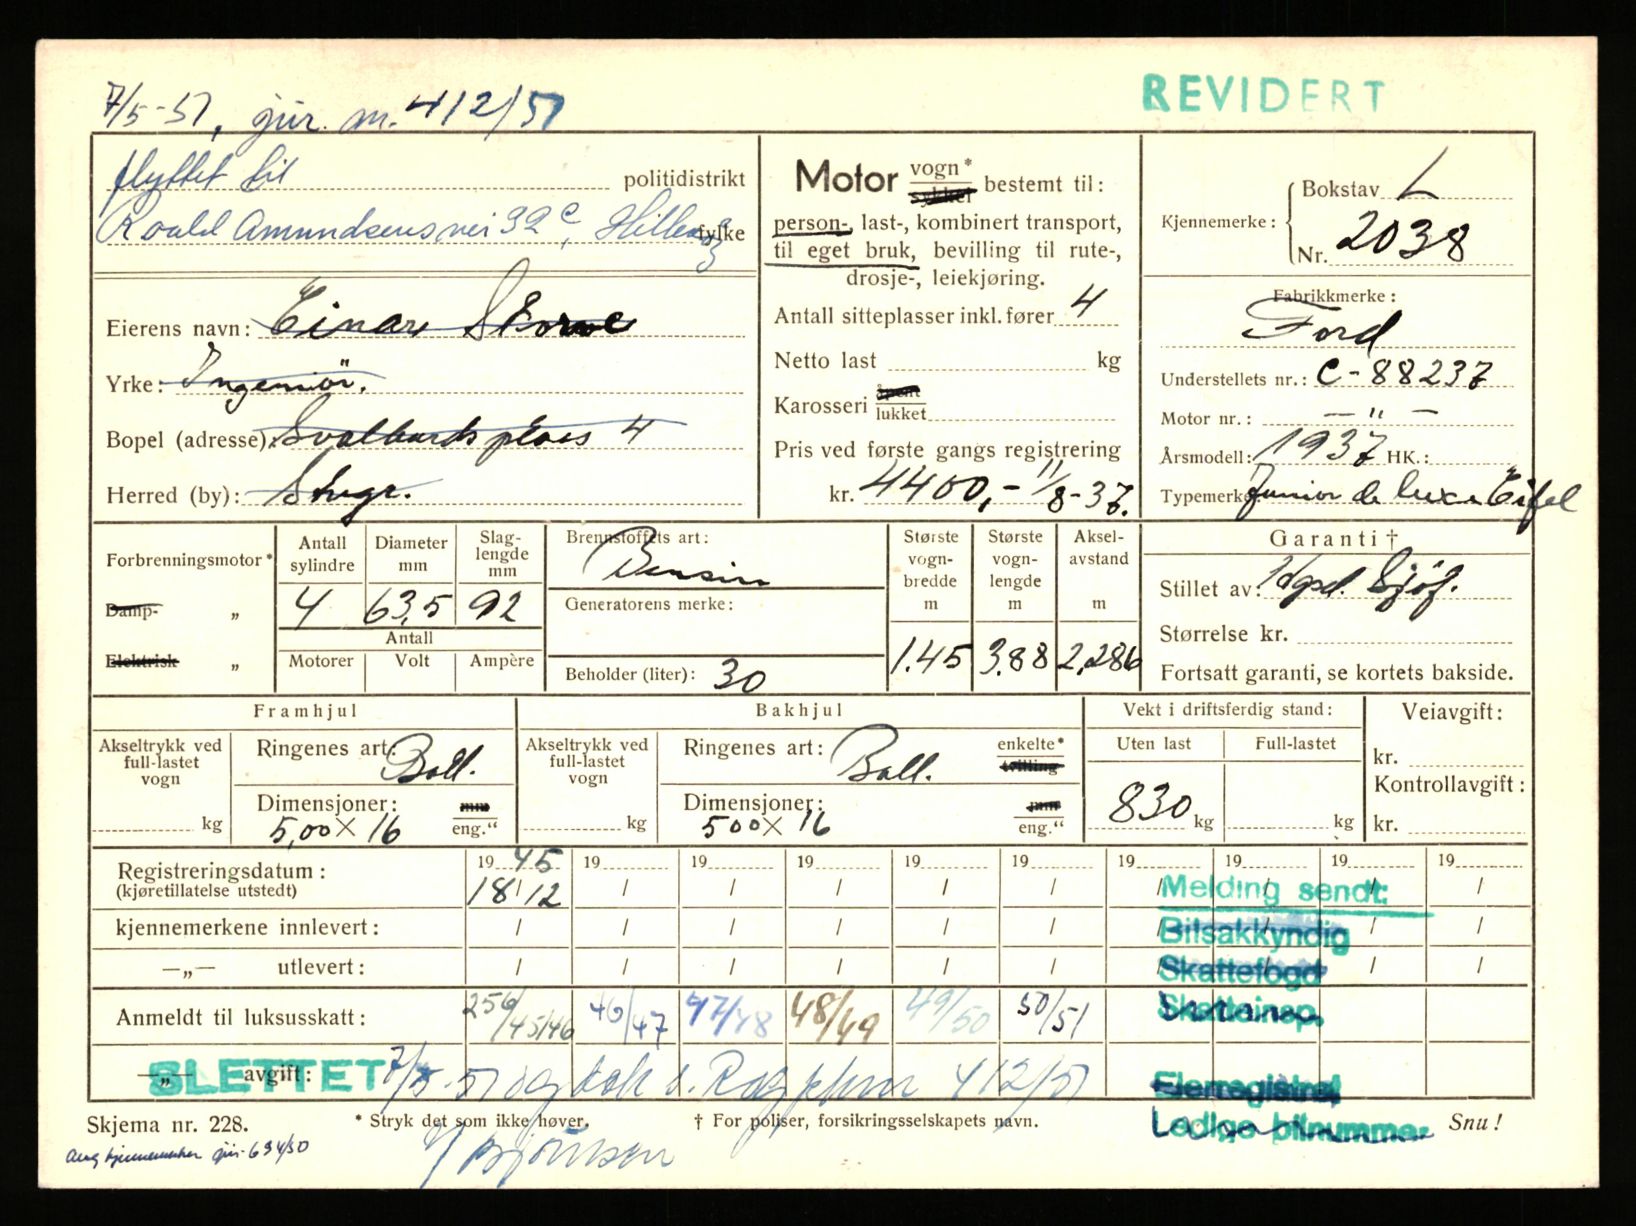 REVIDERT
7/5-51, jur. nr. 412/51
flyttet til politidistrikt
Roald Amundsens vei 32 c, Hillevåg fylke
Eierens navn: Einar Storve
Yrke: Ingeniör.
Bopel (adresse): Svalbards plass 4
Herred (by): Stvgr.
Motor vogn*
sykkel
bestemt til:
person-, last-, kombinert transport,
til eget bruk, bevilling til rute-,
drosje-, leiekjøring.
Antall sitteplasser inkl. fører 4
Netto last kg
Karosseri åpent
lukket
Pris ved første gangs registrering
kr. 4400,- 11/8-37.
Kjennemerke: Bokstav L
Nr. 2038
Fabrikkmerke:
Ford
Understellets nr.: C-88237
Motor nr.: — " —
Årsmodell: 1937 HK.:
Typemerke: Junior de luxe Eifel
Forbrenningsmotor*
Damp- „
Elektrisk „
Antall sylindre
4
Diameter mm
63,5
Slag-lengde mm
92
Antall
Motorer Volt Ampère
Brennstoffets art:
Bensin
Generatorens merke:
Beholder (liter): 30
Største vogn-bredde m
1.45
Største vogn-lengde m
3.88
Aksel-avstand m
2,286
Garanti †
Stillet av:
Størrelse kr.
Fortsatt garanti, se kortets bakside.
Framhjul
Akseltrykk ved full-lastet vogn
kg
Ringenes art: Ball.
Dimensjoner: mm
5,00 X 16 eng.“
Bakhjul
Akseltrykk ved full-lastet vogn
kg
Ringenes art: Ball. enkelte*
tvilling
Dimensjoner: mm
500 X 16 eng.“
Vekt i driftsferdig stand:
Uten last Full-lastet
830 kg kg
Veiavgift:
kr.
Kontrollavgift:
kr.
Registreringsdatum: 19 45 19 19 19 19 19 19 19 19 19
(kjøretillatelse utstedt) 18/12 / / / / / / / / /
kjennemerkene innlevert: / / / / / / / / / /
—„— utlevert: / / / / / / / / / /
Anmeldt til luksusskatt: 256/45/46 46/47 47/48 48/49 49/50 50/51
—„— avgift:
SLETTET 7/5-51 412/51
Melding sendt:
Bilsakkyndig
Skattefogd
Skatteinsp.
Eierregistret
Ledige bilnummer
Skjema nr. 228.
* Stryk det som ikke høver.
† For poliser, forsikringsselskapets navn.
Snu!
kjennemerker jur. 694/50